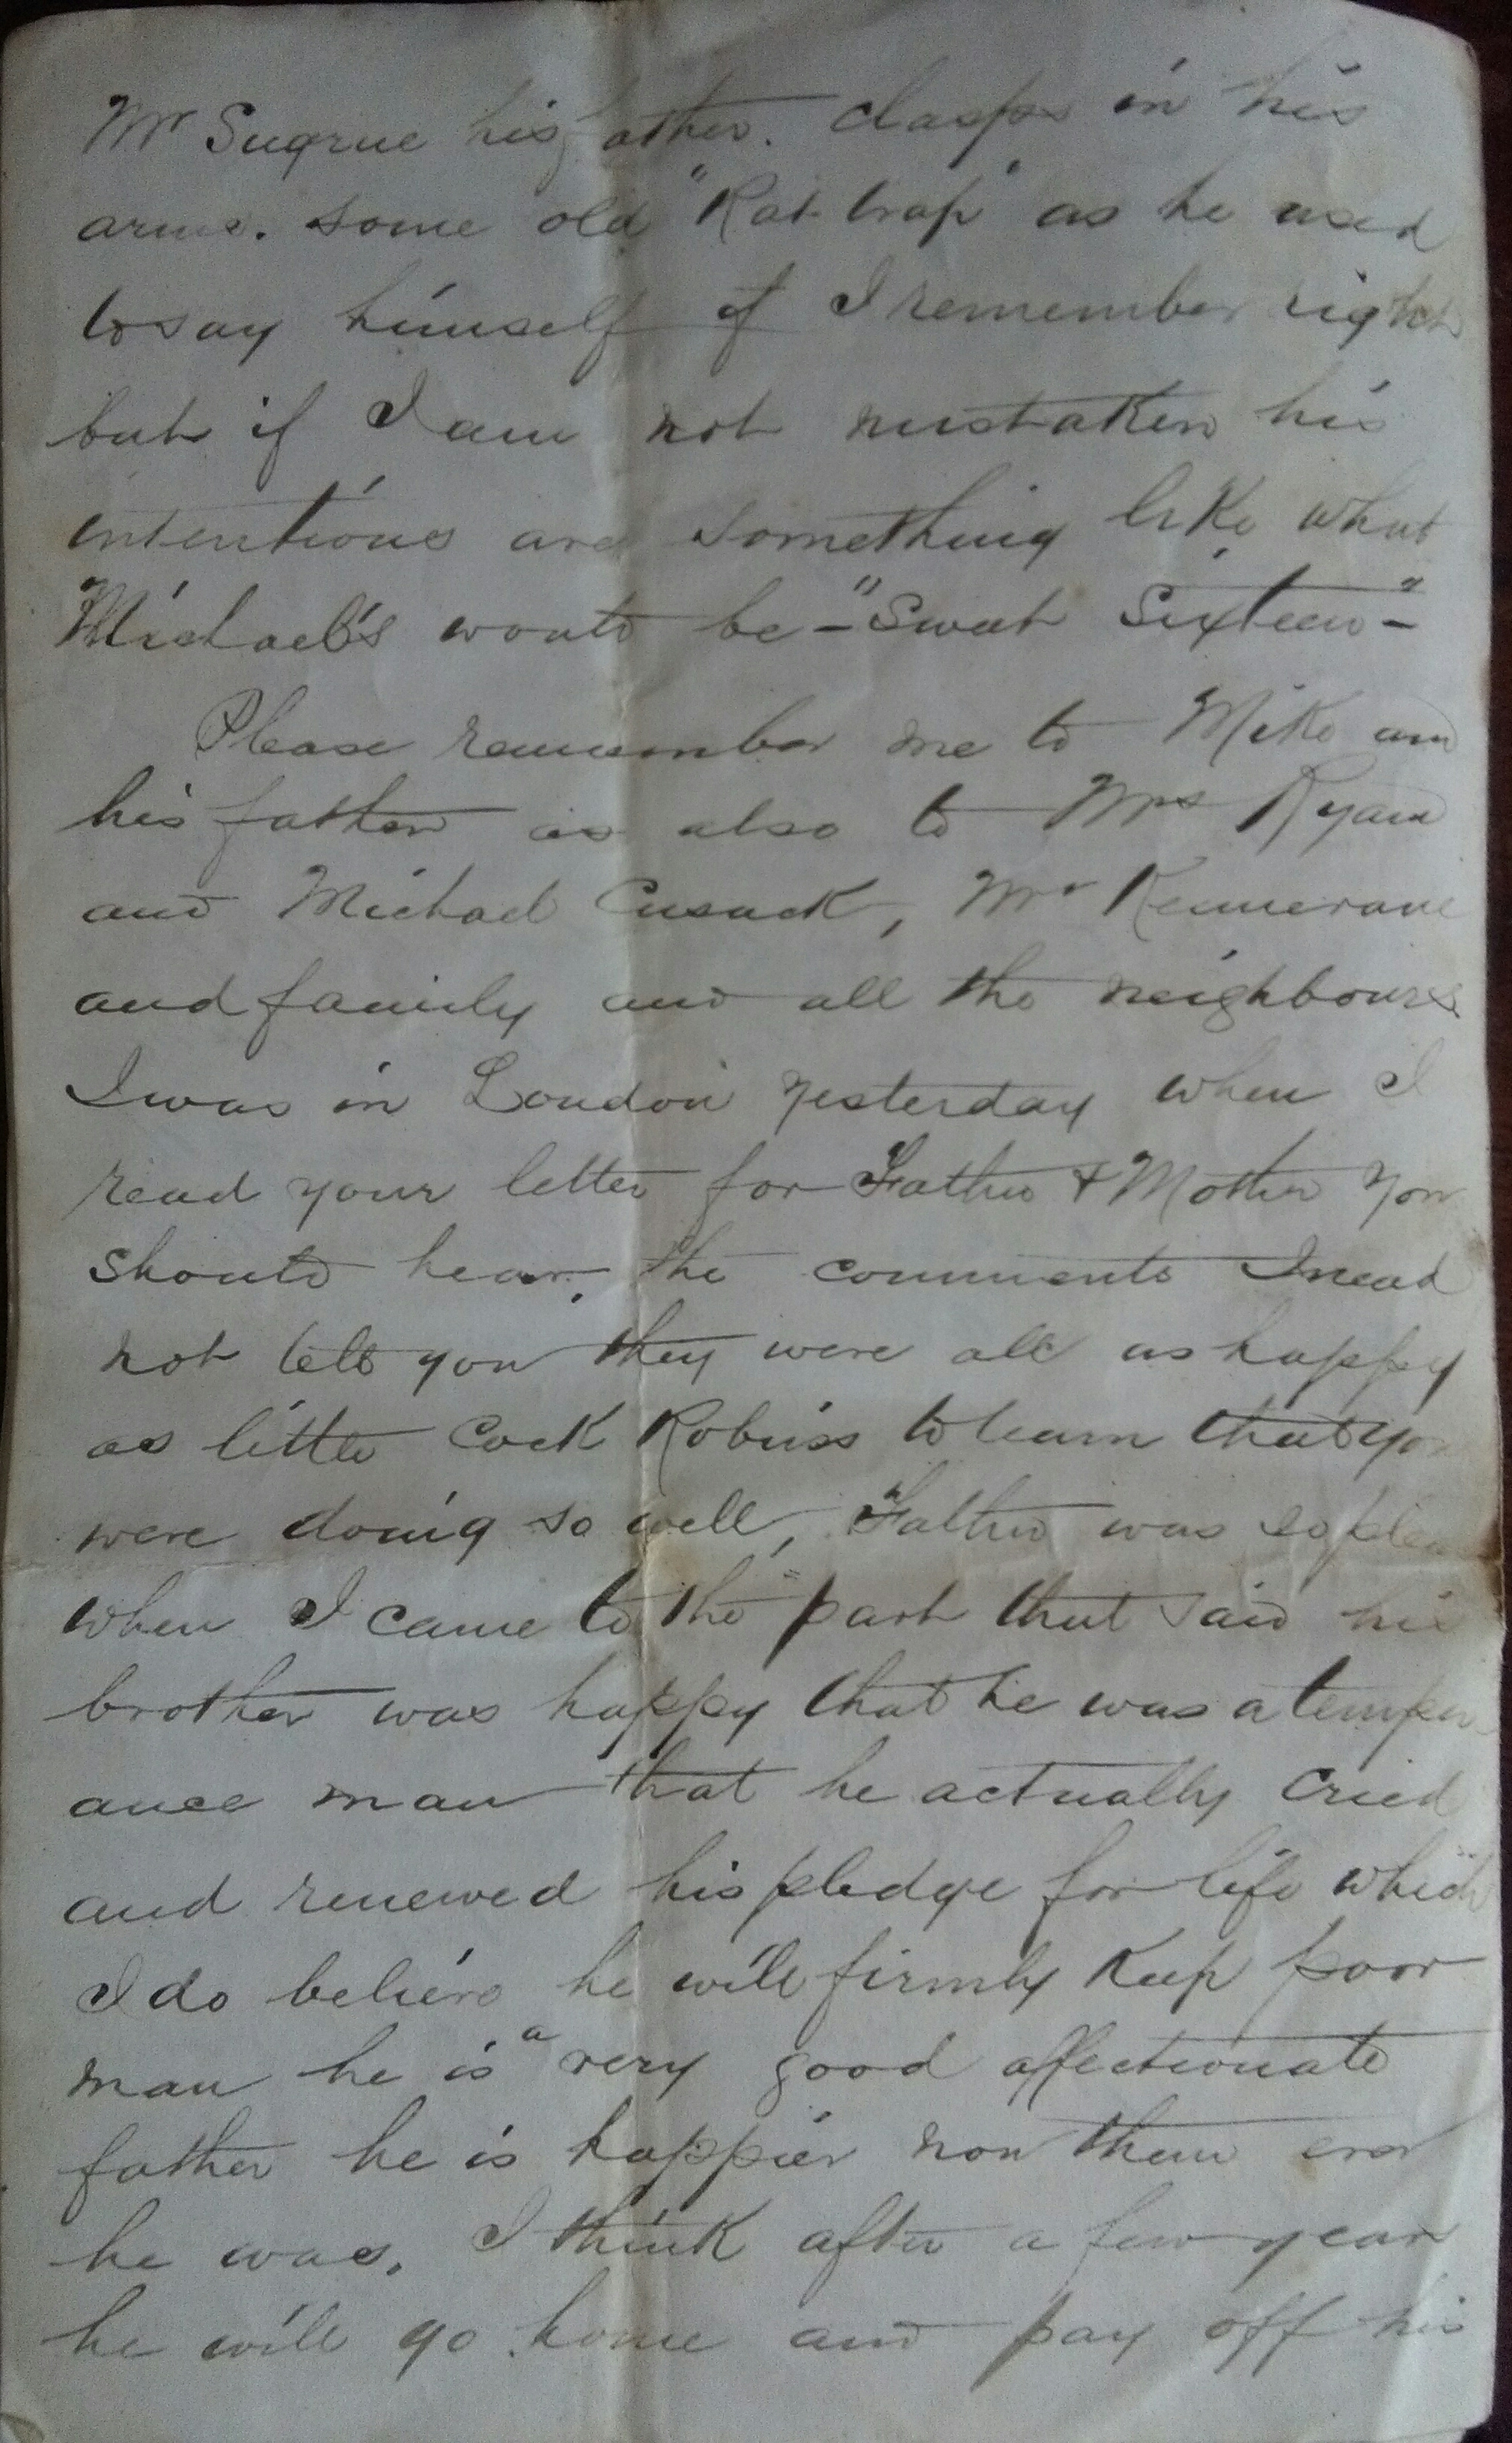 Mr Sugrue his father. clasps in his
arms. some old "Rat-trap" as he used
to say himself if I remember right
but if I am not mistaken his
intentions are something like what
Michael's would be - "Sweet Sixteen" -
Please remember me to Mike and
his father as also to Mrs Ryan
and Michael Cusack, Mr
and family and all the neighbours
I was in London yesterday when I
read your letter for Father & Mother you
should hear. the comments I need
not tell you they were all as happy
as little Cock Robins to learn that you
were doing so well, Father was so
when I came to the part that said his
brother was happy that he was a temper
ance man that he actually cried
and renewed his pledge for life which
I do believe he will firmly keep poor
man he is a very good affectionate
father he is happier now than ever
he was. I think after a few years
he will go home and pay off his